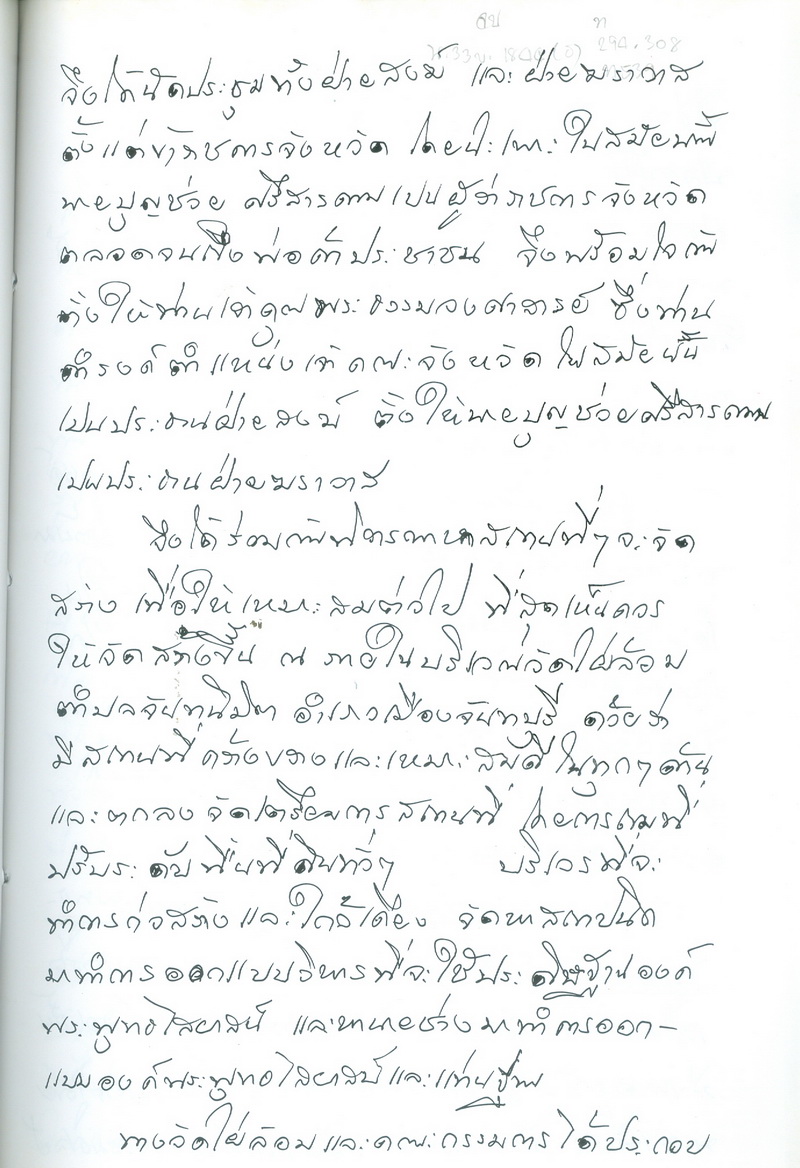 ศบ ท
294.308
จึงได้นัดประชุมทั้งฝ่ายสงฆ์ และฝ่ายฆราวาส
ตั้งแต่ข้าราชการจังหวัด โดยเฉพาะในสมัยนี้
นายบุญช่วย ศรีสารคาม เปนผู้ว่าราชการจังหวัด
ตลอดจนถึงพ่อค้าประชาชน จึงพร้อมใจกัน
ตั้งให้ท่านเจ้าคุณพระธรรมวงศาจารย์ ซึ่งท่าน
ดำรงค์ตำแหน่งเจ้าคณะจังหวัด ในสมัยนั้น
เปนประธานฝ่ายสงฆ์ ตั้งให้นายบุญช่วย ศรีสารคาม
เปนประธานฝ่ายฆราวาส
จึงได้ร่วมกันพิจารณาหาสถานที่ๆ จะจัด
สร้าง เพื่อให้เหมาะสมต่อไป ที่สุดเห็นควร
ให้จัดสร้างขึ้น ณ ภายในบริเวณวัดไผ่ล้อม
ตำบลจันทนิมิต อำเภอเมืองจันทบุรี ด้วยว่า
มีสถานที่กว้างขวางและเหมาะสมดีในทุกๆ ด้าน
และตกลงจัดเตรียมการสถานที่ โดยการถมที่
ปรับระดับพื้นที่ดินทั่วๆ บริเวณที่จะ
ทำการก่อสร้าง และใกล้เคียง จัดหาสถาปนิก
มาทำการออกแบบวิหารที่จะใช้ประดิษฐานองค์
พระพุทธไสยาสน์ และหานายช่างมาทำการออก-
แบบองค์พระพุทธไสยาสน์และแท่นฐาน
ทางวัดไผ่ล้อมและคณะกรรมการได้ประกอบ